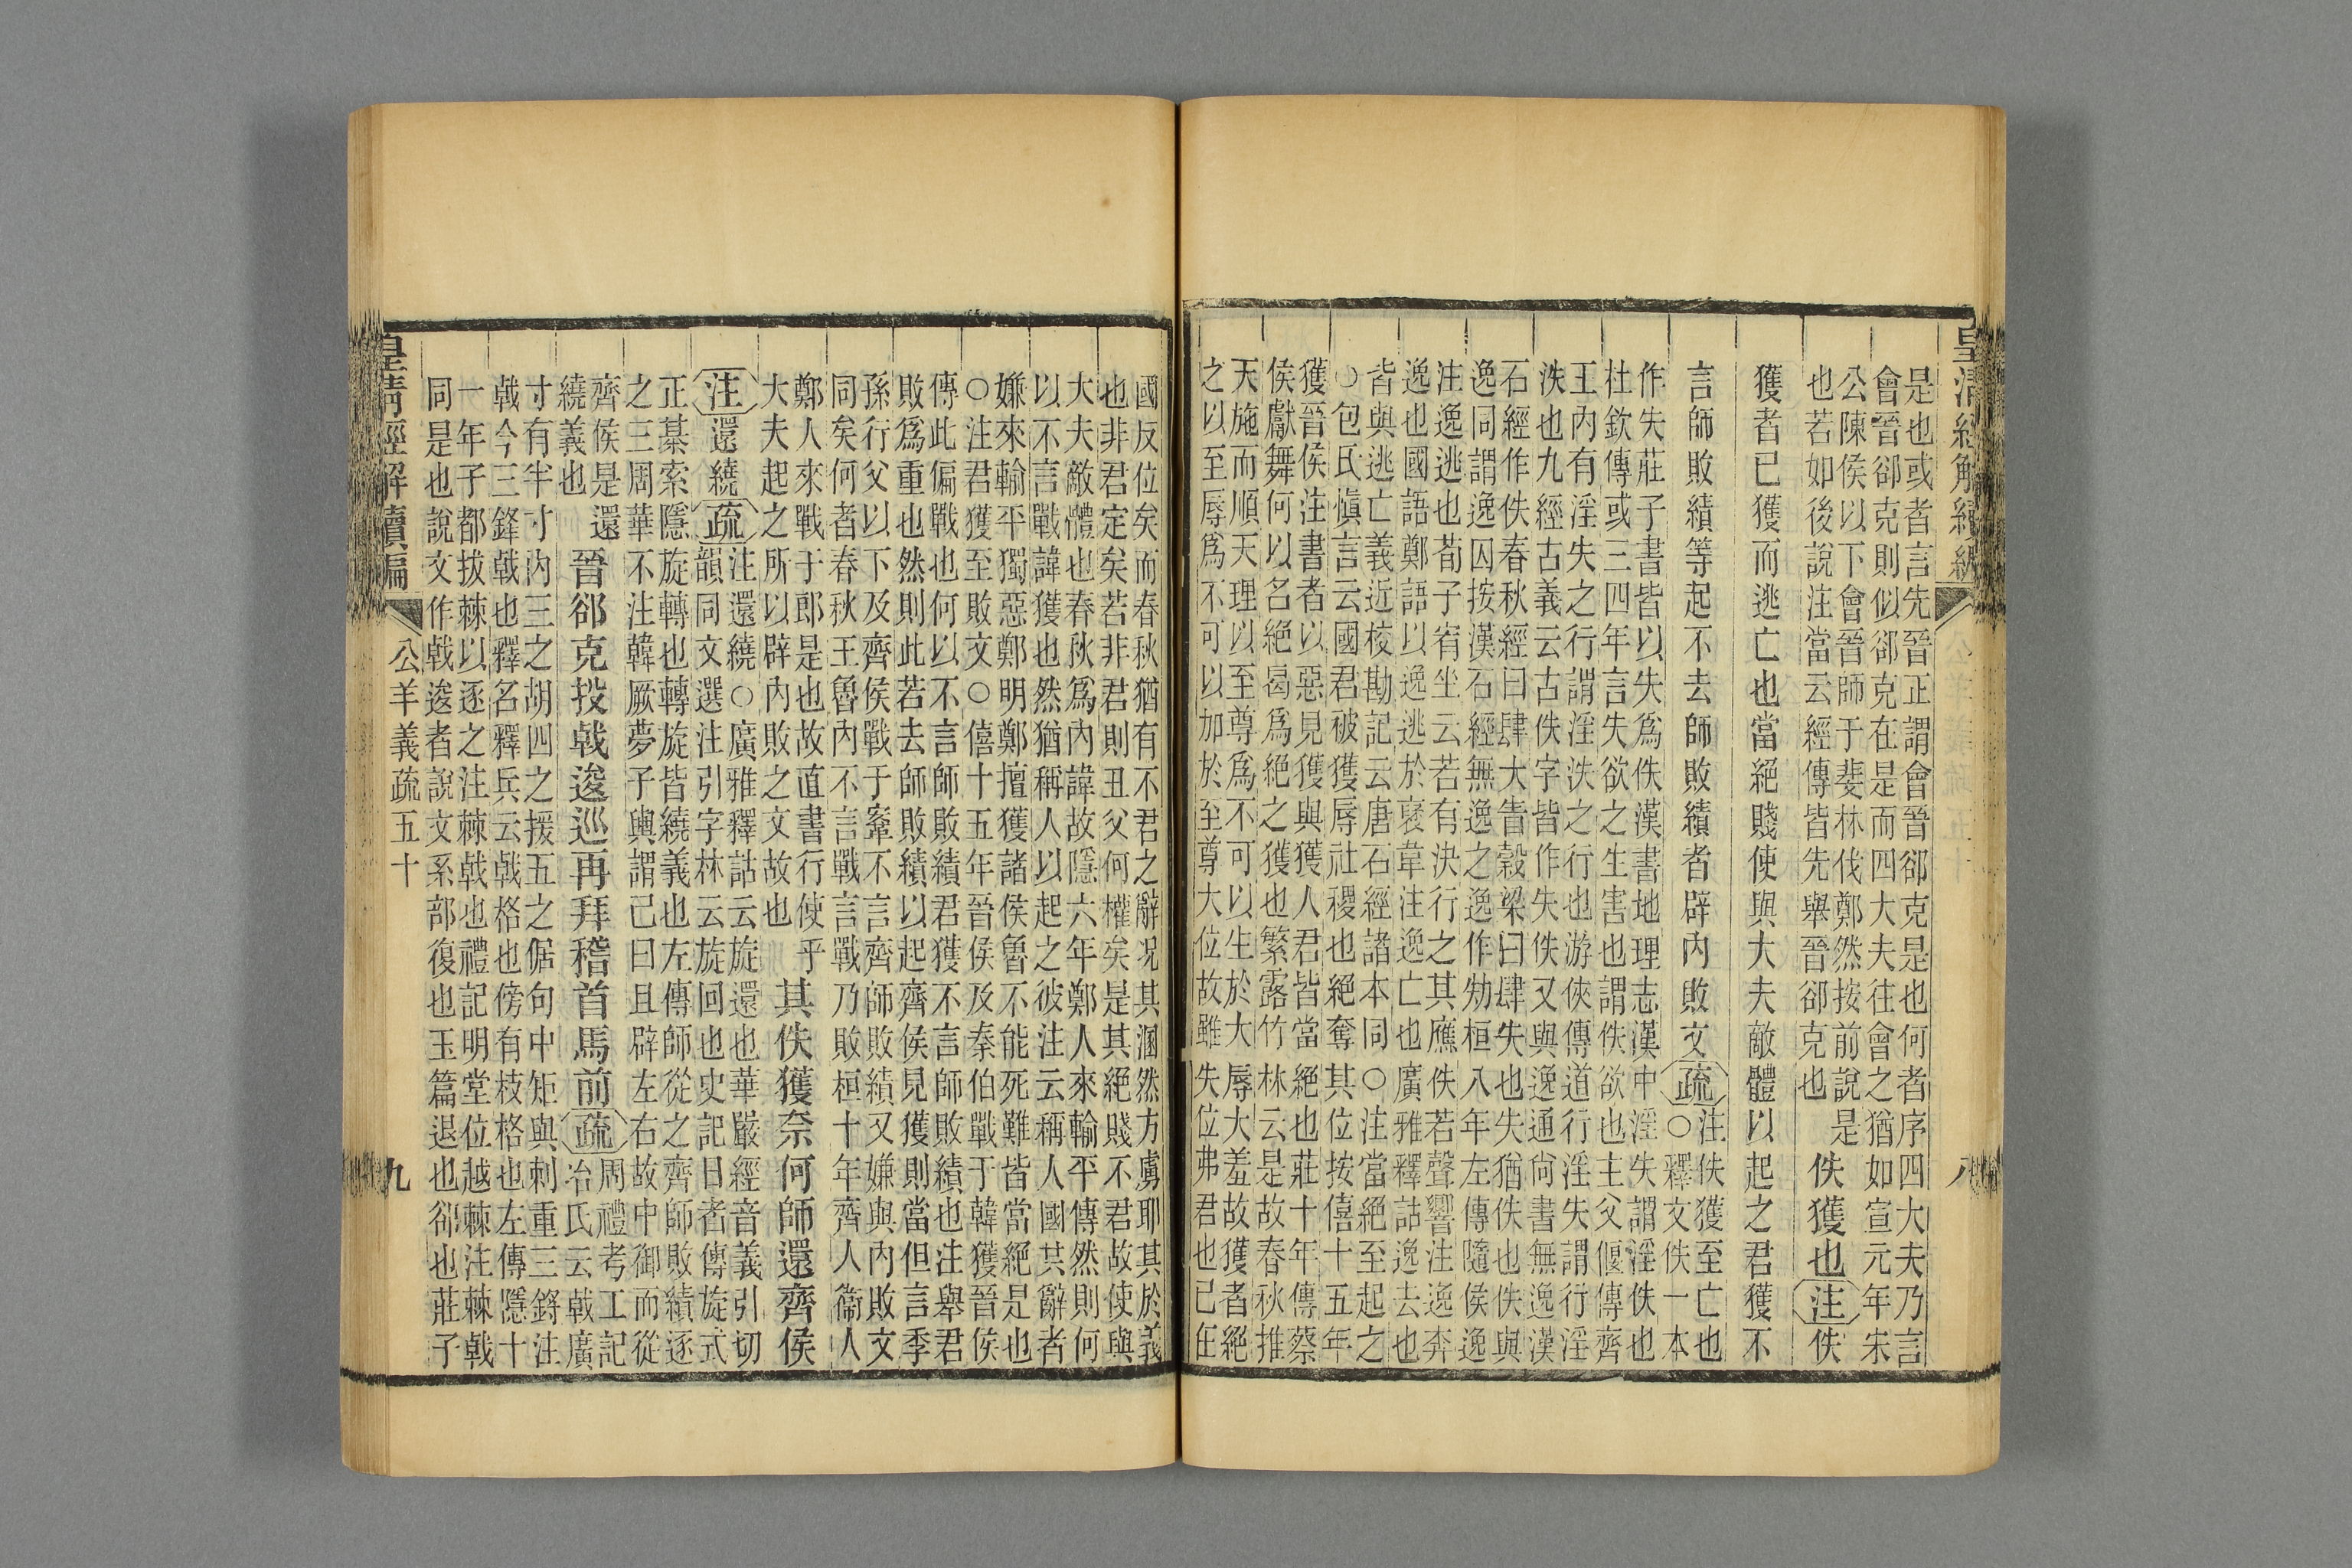 皇清經解續編
八
是也或者言先晉正謂會晉郤克是也何者序四大夫乃言
會晉郤克則似郤克在是而四大夫往會之猶如宣元年宋
公陳侯以下會晉師于斐林伐鄭然按前說是
也若如後說注當云經傳皆先舉晉郤克也
佚獲也注佚
獲者已獲而逃亡也當絕賤使與大夫敵體以起之君獲不
言師敗績等起不去師敗績者辟內敗文疏
注佚獲至亡也
○釋文佚一本
作失莊子書皆以失爲佚漢書地理志漢中淫失謂淫佚也
杜欽傳或三四年言失欲之生害也謂佚欲也主父偃傳齊
王內有淫失之行謂淫泆之行也游俠傳道行淫失謂行淫
泆也九經古義云古佚字皆作失佚又與逸通尙書無逸漢
石經作佚春秋經曰肆大眚穀梁曰肆失也失猶佚也佚與
逸同謂逸囚按漢石經無逸之逸作劮桓八年左傳隨侯逸
注逸逃也荀子宥坐云若有決行之其應佚若聲響注逸奔
逸也國語鄭語以逸逃於襃韋注逸亡也廣雅釋詁逸去也
皆與逃亡義近校勘記云唐石經諸本同○注當絕至起之
○包氏愼言云國君被獲辱社稷也絕奪其位按僖十五年
獲晉侯注書者以惡見獲與獲人君皆當絕也莊十年傳蔡
侯獻舞何以名絕曷爲絕之獲也繁露竹林云是故春秋推
天施而順天理以至尊爲不可以生於大辱大羞故獲者絕
之以至辱爲不可以加於至尊大位故雖失位弗君也已在
國反位矣而春秋猶有不君之辭况其溷然方虜耶其於義
也非君定矣若非君則丑父何權矣是其絕賤不君故使與
大夫敵體也春秋爲內諱故隱六年鄭人來輸平傳然則何
以不言戰諱獲也然猶稱人以起之彼注云稱人國其辭者
嫌來輸平獨惡鄭明鄭擅獲諸侯魯不能死難皆當絕是也
○注君獲至敗文○僖十五年晉侯及秦伯戰于韓獲晉侯
傳此偏戰也何以不言師敗績君獲不言師敗績也注舉君
敗爲重也然則此若去師敗績以起齊侯見獲則當但言季
孫行父以下及齊侯戰于鞌不言齊師敗績又嫌與內敗文
同矣何者春秋王魯內不言戰言戰乃敗桓十年齊人衞人
鄭人來戰于郎是也故直書行使乎
大夫起之所以辟內敗之文故也
其佚獲奈何師還齊侯
注還繞疏
注還繞○廣雅釋詁云旋還也華嚴經音義引切
韻同文選注引字林云旋回也史記日者傳旋式
正棊索隱旋轉也轉旋皆繞義也左傳師從之齊師敗績逐
之三周華不注韓厥夢子輿謂己曰且辟左右故中御而從
齊侯是還
繞義也
晉郤克投戟逡巡再拜稽首馬前疏
周禮考工記
冶氏云戟廣
寸有半寸內三之胡四之援五之倨句中矩與刺重三鋝注
戟今三鋒戟也釋名釋兵云戟格也傍有枝格也左傳隱十
一年子都拔棘以逐之注棘戟也禮記明堂位越棘注棘戟
同是也說文作戟逡者說文系部復也玉篇退也郤也莊子
皇清經解續編
公羊義疏五十
九